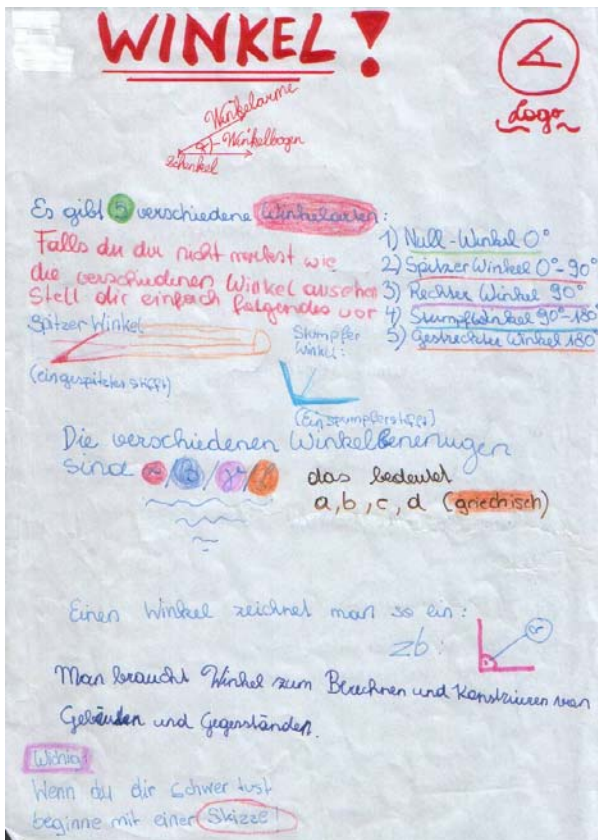 WINKEL!
Logo
Winkelarme
α
Winkelbogen
Schenkel
Es gibt 5 verschiedene Winkelarten:
1) Null-Winkel 0°
2) Spitzer Winkel 0°-90°
3) Rechter Winkel 90°
4) Stumpfwinkel 90°-180°
5) Gestreckter Winkel 180°
Falls du dir nicht merkest wie
die verschiedenen Winkel aussehen
Stell dir einfach folgendes vor
Spitzer Winkel
(ein gespitzter Stift)
Stumpfer
Winkel:
(Ein stumpfer Stift)
Die verschiedenen Winkelbenennugen
sind α/β/γ/δ
das bedeutet
a, b, c, d (griechisch)
Einen Winkel zeichnet man so ein:
zb:
α
Man braucht Winkel zum Berechnen und Konstruieren von
Gebäuden und Gegenständen.
Wichtig!
Wenn du dir schwer tust
beginne mit einer Skizze!